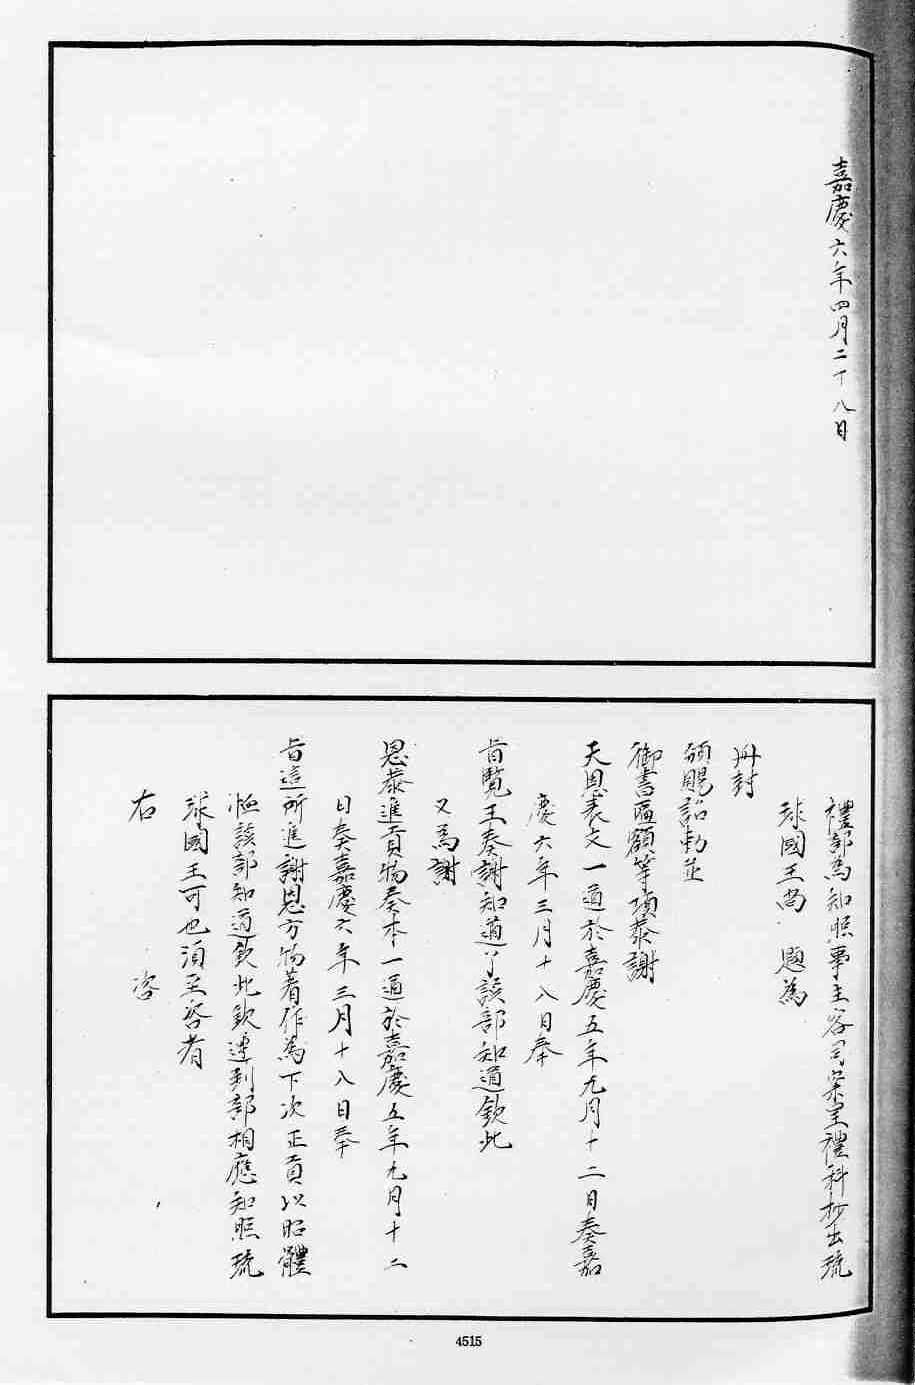 嘉慶六年四月二十八日
禮部為知照事主客司案呈禮科抄出琉
球國王尚 題為
冊封
頒賜詔勅並
御書匾額等項恭謝
天恩表文一道於嘉慶五年九月十二日奏嘉
慶六年三月十八日奉
旨覽王奏謝知道了該部知道欽此
又為謝
恩恭進貢物奏本一道於嘉慶五年九月十二
日奏嘉慶六年三月十八日奉
旨這所進謝恩方物著作為下次正貢以昭體
恤該部知道欽此欽遵到部相應知照琉
球國王可也須至咨者
右 咨
4515